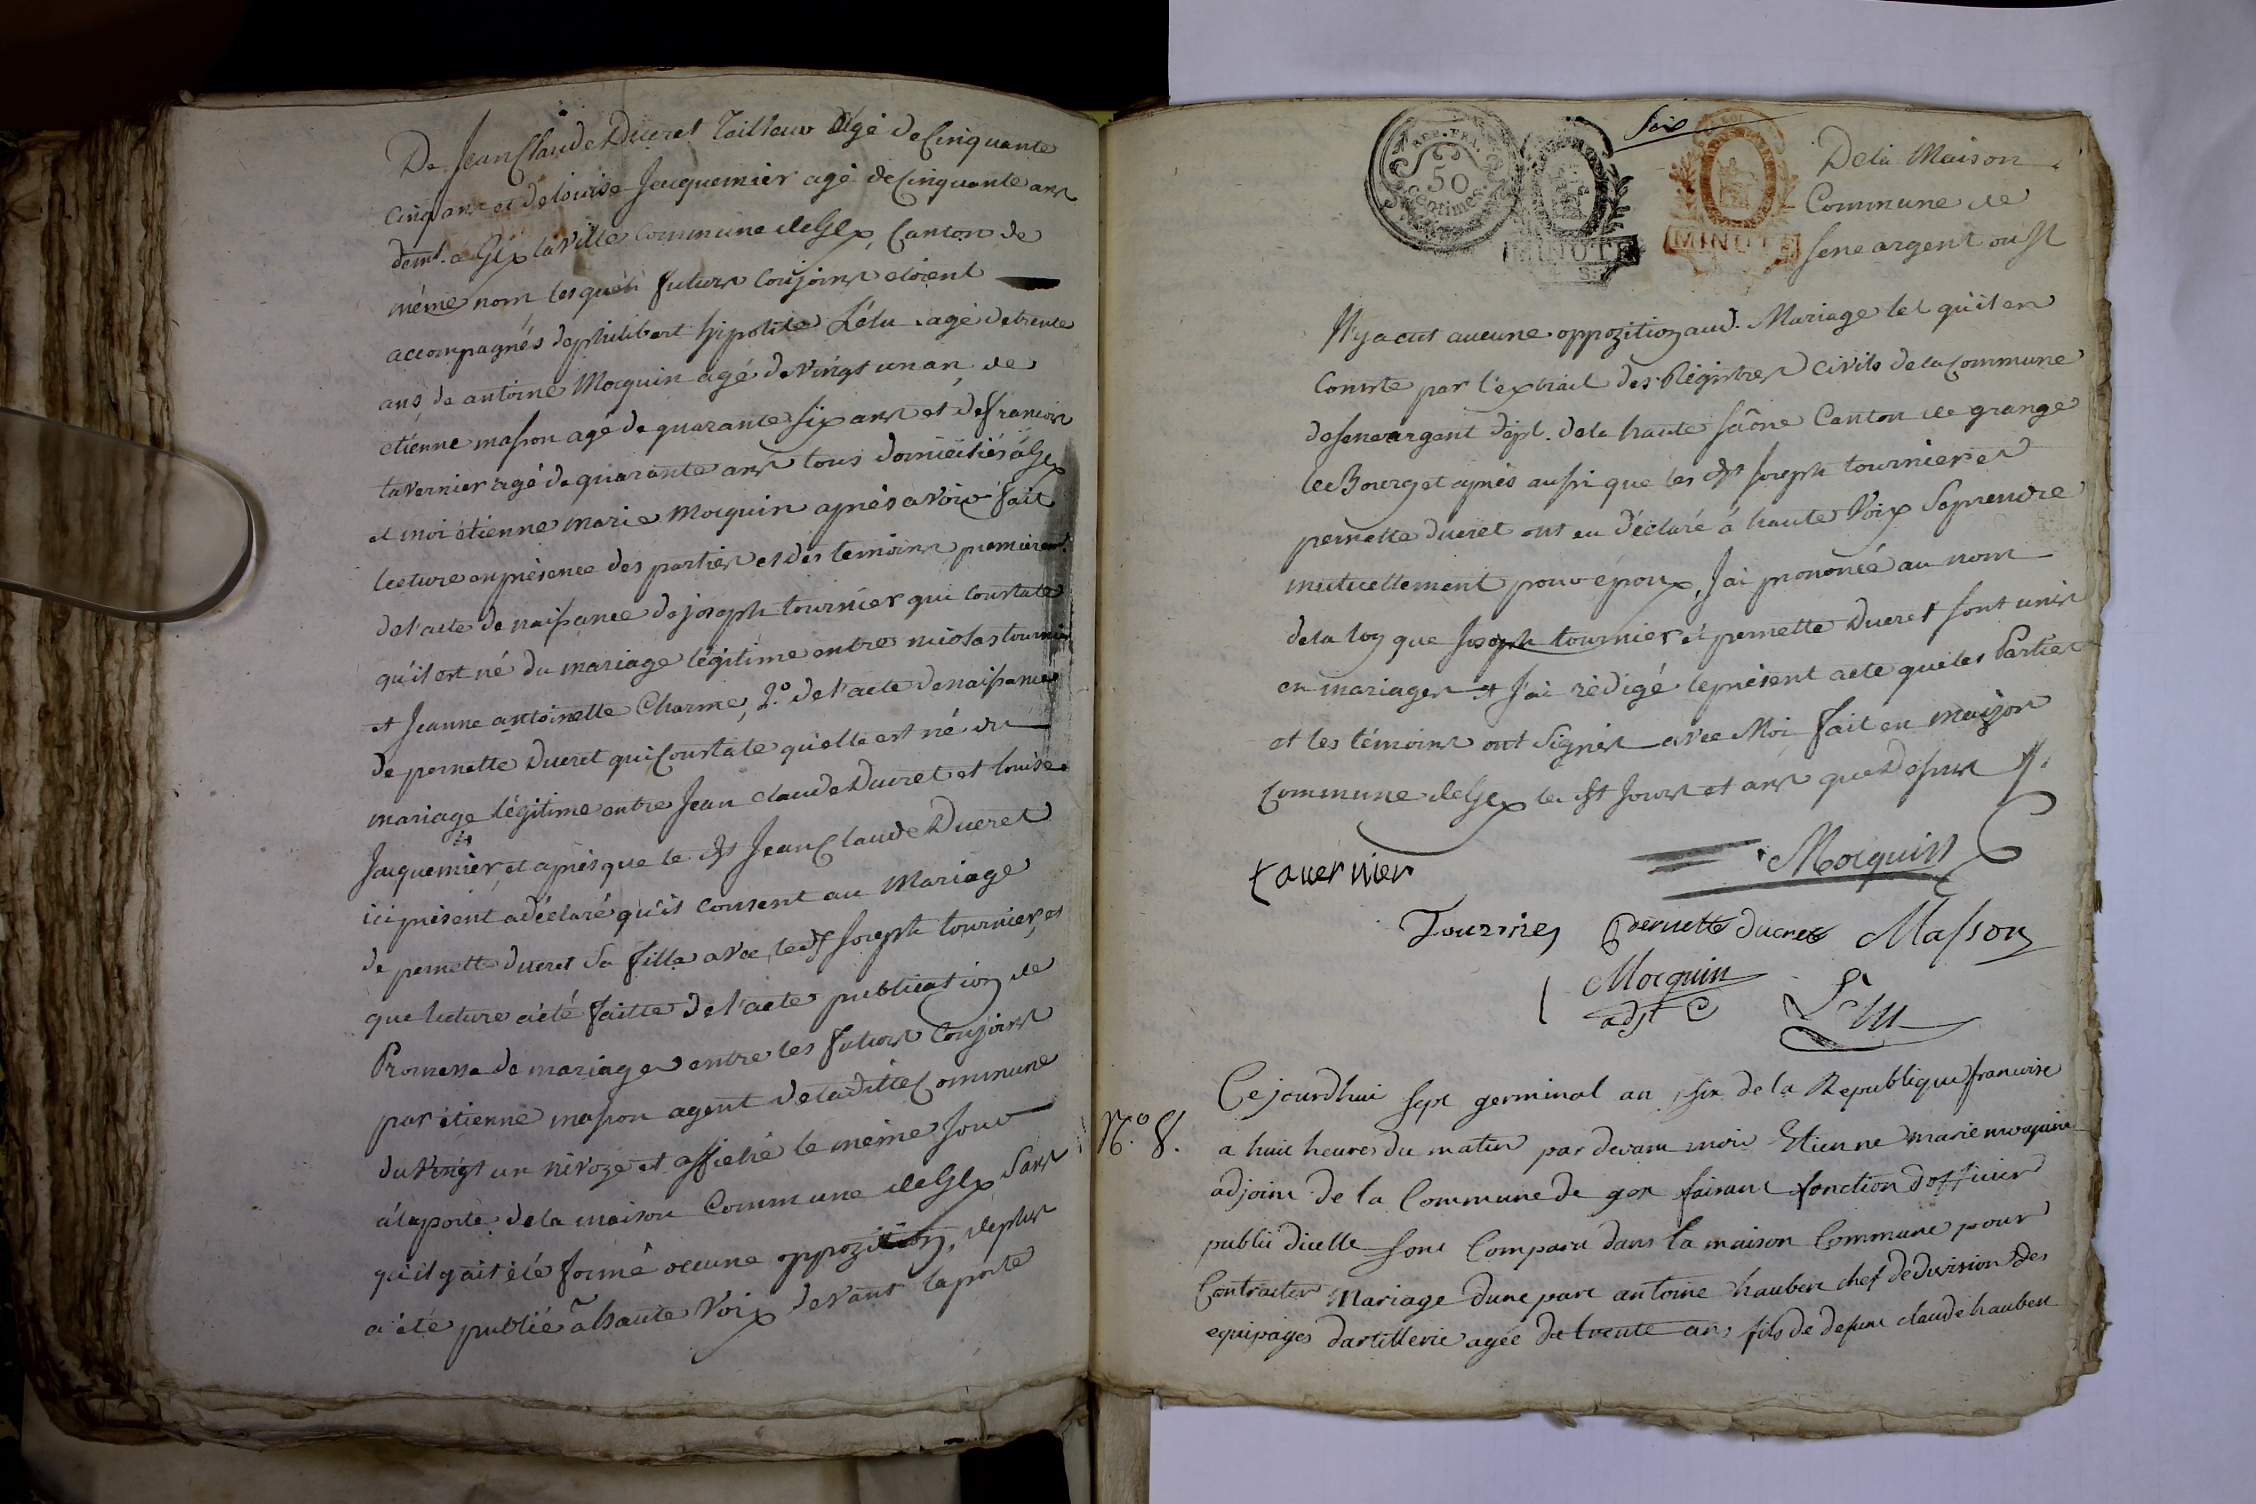 De Jean Claude Ducret Tailleur Agé de Cinquante
cinq ans et de louise Jacquemier agé de Cinquante ans
demt. a Gex la ville Commune de Gex, Canton de
même nom, lesquels futurs Conjoins etoient
accompagnés de philibert hipolite L'élu agé de trente
ans, de antoine Mocquin agé de vingt un an, de
etienne masson agé de quarante six ans et de francois
tavernier agé de quarante ans tous domiciliés à Gex
et moi étienne marie Mocquin après avoir fait
lecture en présence des parties et des temoins premierent.
de l'acte de naissance de joseph tournier qui Constate
qu'il est né du mariage légitime entre nicolas tournier
et Jeanne antoinette Charme, 2.° de l'acte de naissance
de pernette Ducret qui Constate qu'elle est né du
mariage légitime entre Jean claude Ducret et louise
Jacquemier, et après que le dt Jean Claude Ducret
ici présent a déclaré qu'il Consent au Mariage
de pernette ducret sa fille avec le dt Joseph tournier, et
que lecture a été faitte de l'acte publication de
Promesse de mariage entre les futurs Conjoins
par étienne masson agent de la ditte Commune
du vingt un nivoze et affiché le même jour
à la porte de la maison Commune de Gex sans
qu'il y ait été formé aucune oppozition, de plus
a été publié à haute voix devant la porte
Six
REP. FRA.
50
Centimes
MINUTE
MINUTE
De la Maison
Commune de
Sene argent ou Il
N'y a eut aucune oppozition aud. Mariage tel qu'il en
Conste par l'extrait des Régistres Civils de la Commune
de Sene argent dépt. de la haute saône Canton de grange
le Bourg et après aussi que les dt Joseph tournier et
pernette ducret ont eu déclaré à haute voix se prendre
mutuellement pour époux, J'ai prononcé au nom
de la loy que Joseph tournier et pernette Ducret sont unis
en mariage et J'ai rédigé le présent acte que les Parties
et les témoins ont Signés avec Moi fait en maison
Commune de Gex les dt Jours et ans que Dessus
Mocquin
tavernier
Tournier pernette ducret Masson
Mocquin
adjt
L'élu
N.° 8.
Ce jourdhui sept germinal an six de la Republique francoise
a huit heures du matin par devant moi Etienne marie mocquin
adjoint de la Commune de gex faisant fonction dofficier
public dicelle sont Comparu dans la maison Commune pour
Contracter Mariage dune part antoine haubert chef de division des
equipages dartillerie agée de trente ans fils de defunt claude haubert